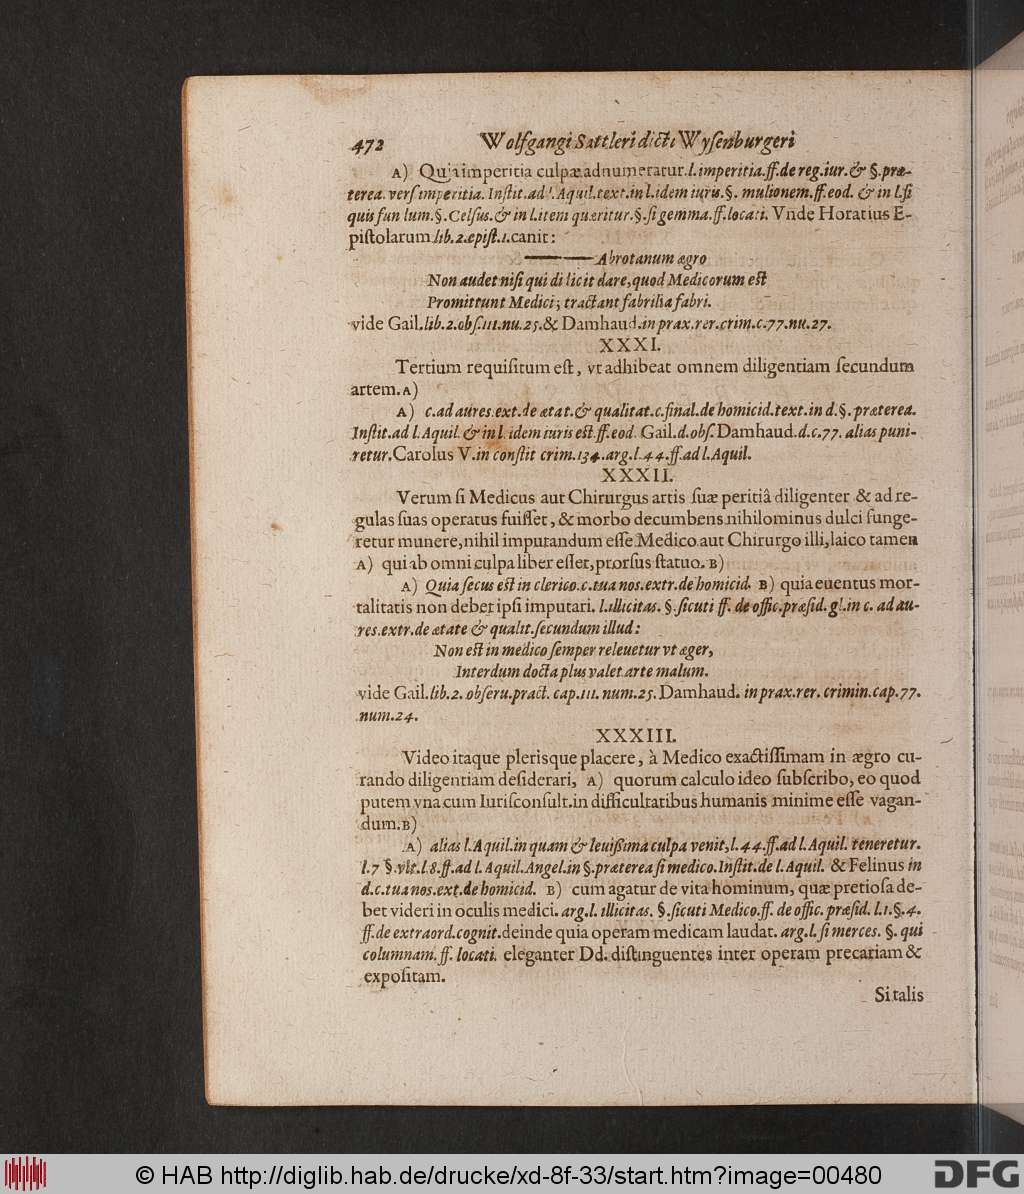 472 Wolfgangi Sattleri dicti Wyſenburgeri
A) Quia imperitia culpæ adnumeratur. l. imperitia. ff. de reg. iur. & §. præ-
terea. verſ. imperitia. Inſtit. ad l. Aquil. text. in l. idem iuris. §. mulionem. ff. eod. & in l. ſi
quis fun lum. §. Celſus. & in l. item quæritur. §. ſi gemma. ff. locati. Vnde Horatius E-
piſtolarum lib. 2. epiſt. 1. canit:
—— —— Abrotanum ægro
Non audet niſi qui di licit dare, quod Medicorum eſt
Promittunt Medici; tractant fabrilia fabri.
vide Gail. lib. 2. obſ. 111. nu. 25. & Damhaud. in prax. rer. crim. c. 77. nu. 27.
XXXI.
Tertium requiſitum eſt, vt adhibeat omnem diligentiam ſecundum
artem. A)
A) c. ad aures. ext. de ætat. & qualitat. c. final. de homicid. text. in d. §. præterea.
Inſtit. ad l. Aquil. & in l. idem iuris eſt. ff. eod. Gail. d. obſ. Damhaud. d. c. 77. alias puni-
retur. Carolus V. in conſtit crim. 134. arg. l. 44. ff. ad l. Aquil.
XXXII.
Verum ſi Medicus aut Chirurgus artis ſuæ peritiâ diligenter & ad re-
gulas ſuas operatus fuiſſet, & morbo decumbens nihilominus dulci funge-
retur munere, nihil imputandum eſſe Medico aut Chirurgo illi, laico tamen
A) qui ab omni culpa liber eſſet, prorſus ſtatuo. B)
A) Quia ſecus eſt in clerico. c. tua nos. extr. de homicid. B) quia euentus mor-
talitatis non debet ipſi imputari. l. illicitas. §. ſicuti ff. de offic. præſid. gl. in c. ad au-
res. extr. de ætate & qualit. ſecundum illud:
Non eſt in medico ſemper releuetur vt æger,
Interdum docta plus valet arte malum.
vide Gail. lib. 2. obſeru. pract. cap. 111. num. 25. Damhaud. in prax. rer. crimin. cap. 77.
num. 24.
XXXIII.
Video itaque plerisque placere, à Medico exactiſſimam in ægro cu-
rando diligentiam deſiderari, A) quorum calculo ideo ſubſcribo, eo quod
putem vna cum Iuriſconſult. in difficultatibus humanis minime eſſe vagan-
dum. B)
A) alias l. Aquil. in quam & leuißima culpa venit, l. 44. ff. ad l. Aquil. teneretur.
l. 7 §. vlt. l. 8. ff. ad l. Aquil. Angel. in §. præterea ſi medico. Inſtit. de l. Aquil. & Felinus in
d. c. tua nos. ext. de homicid. B) cum agatur de vita hominum, quæ pretioſa de-
bet videri in oculis medici. arg. l. illicitas. §. ſicuti Medico. ff. de offic. præſid. l. 1. §. 4.
ff. de extraord. cognit. deinde quia operam medicam laudat. arg. l. ſi merces. §. qui
columnam. ff. locati. eleganter Dd. diſtinguentes inter operam precariam &
expoſitam.
Si talis
© HAB http://diglib.hab.de/drucke/xd-8f-33/start.htm?image=00480
DFG